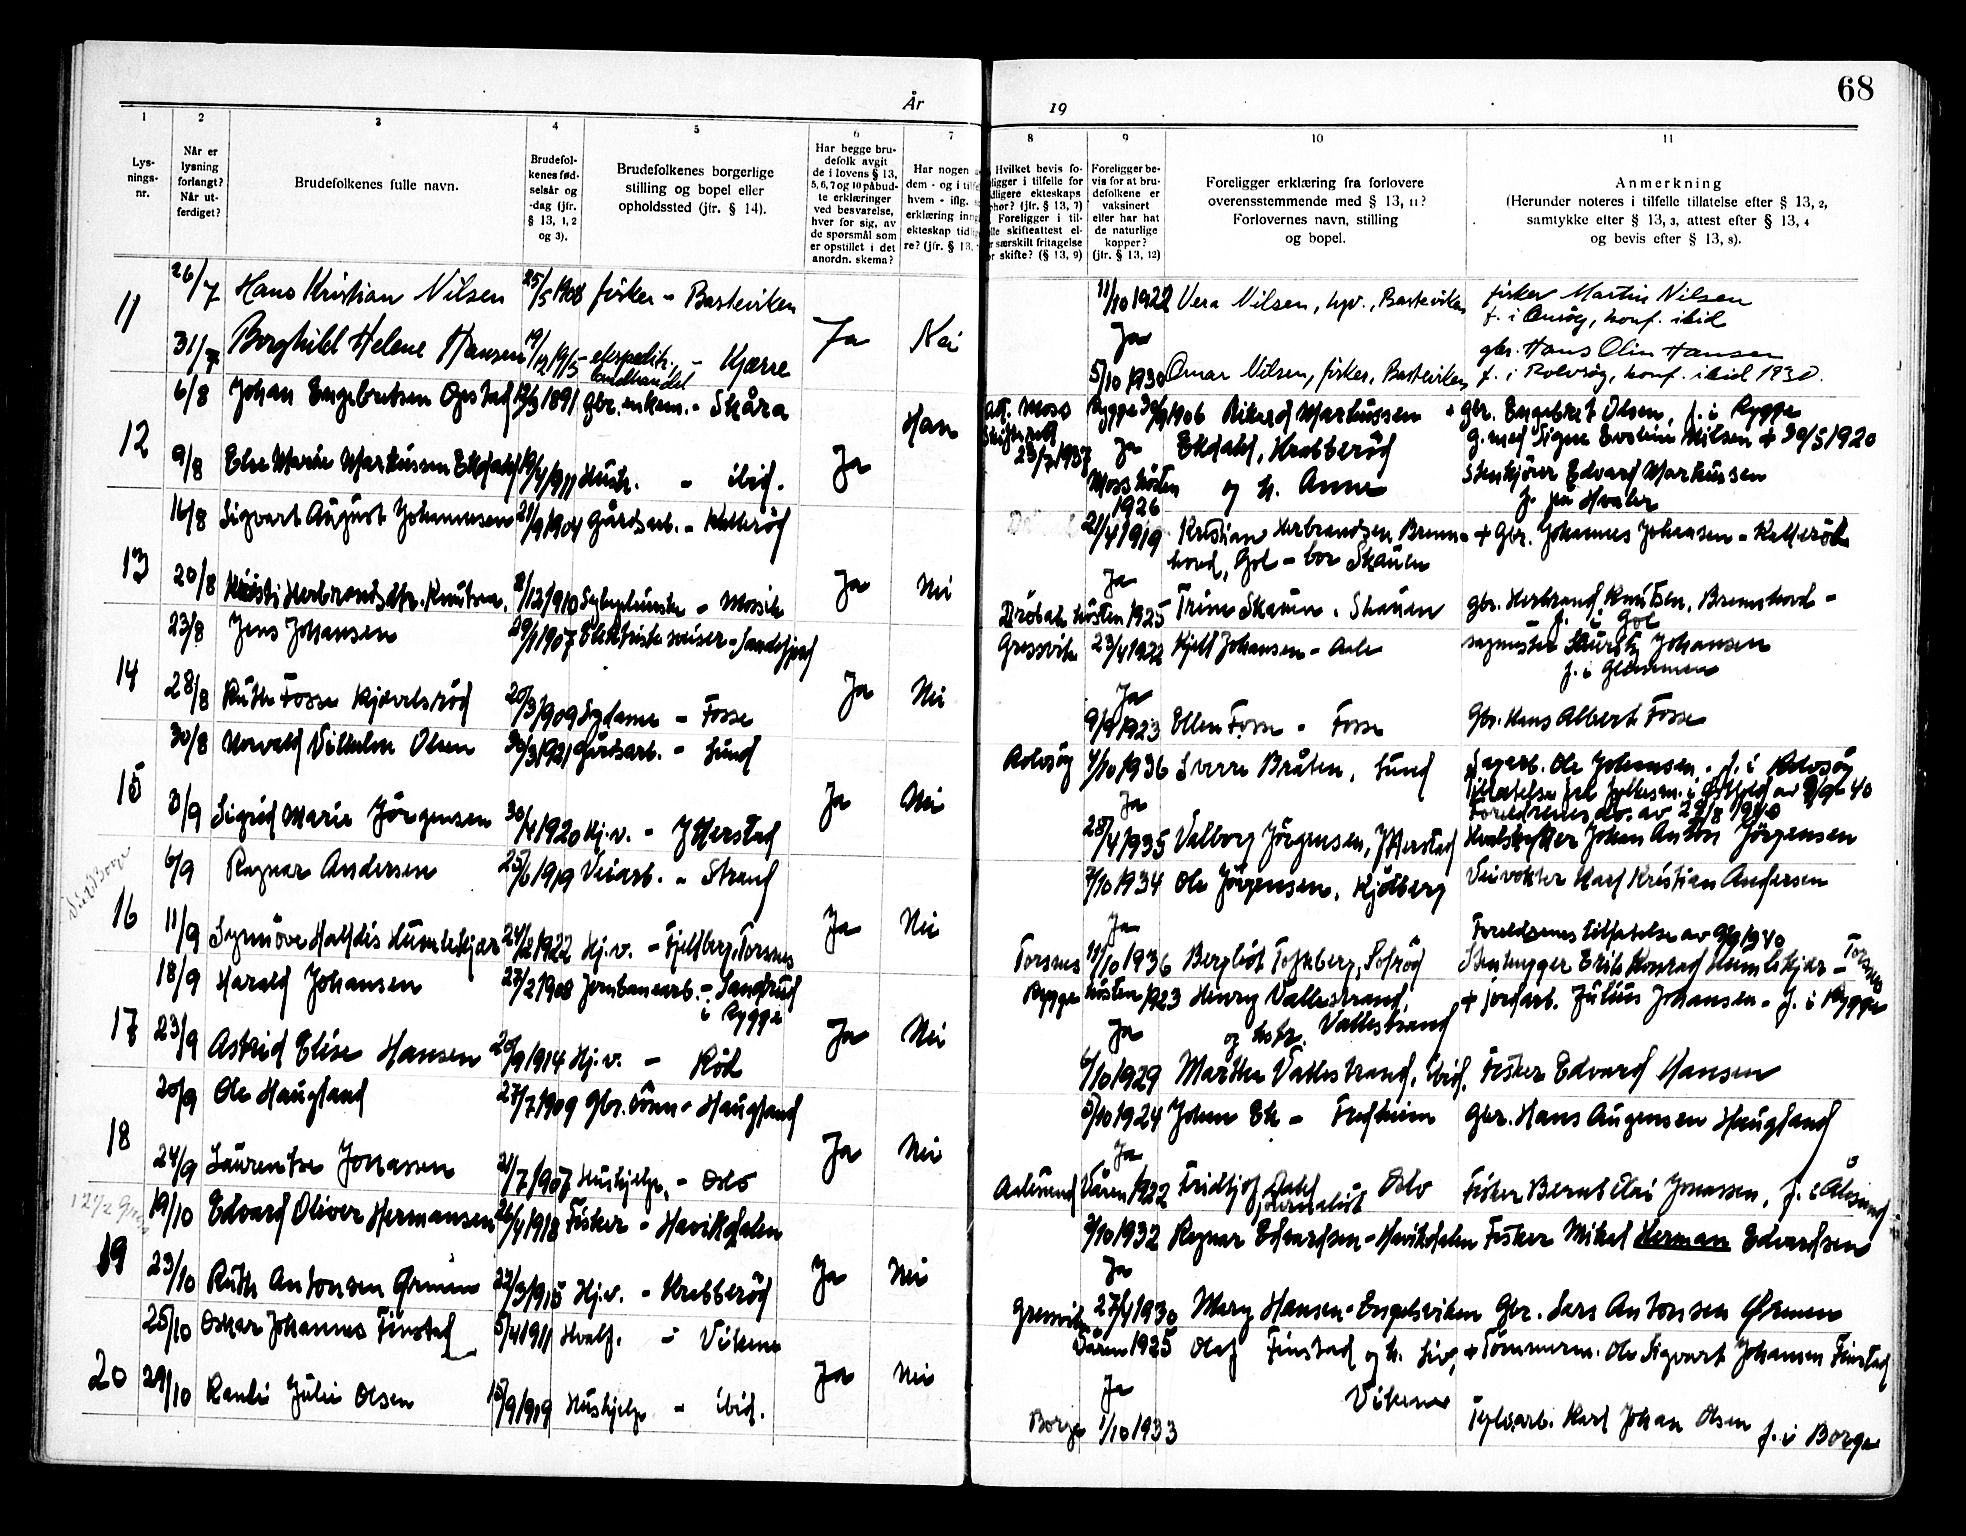 År
19
68
1
2
3
4
5
6
7
8
9
10
11
Lys-
nings-
nr.
Når er
lysning
forlangt?
Når ut-
ferdiget?
Brudefolkenes fulle navn.
Brudefol-
kenes fød-
selsår og
-dag (jfr.
§ 13, 1, 2
og 3).
Brudefolkenes borgerlige
stilling og bopel eller
opholdssted (jfr. § 14).
Har begge bru-
defolk avgit
de i lovens § 13,
5, 6, 7 og 10 påbud-
te erklæringer
ved besvarelse,
hver for sig, av
de spørsmål som
er opstillet i det
anordn. skema?
Har nogen
dem - og i tilf
hvem - iflg.
erklæring inng
ekteskap tidl
re? (jfr. § 13,
Hvilket bevis fo-
ligger i tilfelle for
dligere ekteskaps
phør? (jfr. § 13, 7)
Foreligger i til-
lle skifteattest el-
r særskilt fritagelse
r skifte? (§ 13, 9)
Foreligger be-
vis for at bru-
defolkene er
vaksinert
eller har hat
de naturlige
kopper?
(jfr. § 13, 12)
Foreligger erklæring fra forlovere
overensstemmende med § 13, 11?
Forlovernes navn, stilling
og bopel.
Anmerkning
(Herunder noteres i tilfelle tillatelse efter § 13, 2,
samtykke efter § 13, 3, attest efter § 13, 4
og bevis efter § 13, 8).
11 26/7 Hans Kristian Nilsen 25/5 1908 fisker - Basteviken 11/10 1922 Vera Nilsen, hv., Basteviken fisker Martin Nilsen
f. i Onsøy, konf. ibid
Ja Nei Ja
31/7 Borghild Helene Hansen 19/12 1915 - ekspeditr. landhandel - Kjærre 5/10 1930 Omar Nilsen, fisker, Basteviken gbr. Hans Olin Hansen
f. i Rolvsøy, konf. ibid 1930.
12 6/8 Johan Engebretsen Opstad 1891 gbr. enkem. - Skåra Han Moss 23/7 1937 Rygge 1906 Rikard Markussen gbr. Engebret Olsen, f. i Rygge
g. med Signe Eveline Nilsen + 30/5 1920
Ja Ja Ekdahl, Krabberød
9/8 Else Marie Markussen Ekdahl 1911 Hush. - ibid. Moss høsten 1926 og h. Anne Stenkjører Edvard Markussen
f. på Hvaler
13 16/8 Sigvart August Johannessen 21/9 1904 Gårdsarb. - Kallerød 21/4 1919 Kristian Herbrandsen Brenn-
hovd, Gol - bor Skauen + Gbr. Johannes Johansen - Kallerød
Ja Nei Ja
20/8 Herbrandsdtr. Knutsen. 8/12 1910 - Mossik Drøbak høsten 1925 Trine Skauen. Skauen gbr. Herbrand Knutsen, Brennhovd -
f. i Gol
14 23/8 Jens Johansen 29/1 1907 - Sandefjord Gressvik 23/4 1922 Kjell Johansen - Aale Johansen
f. i Glemmen
Ja Nei Ja
28/8 Ruth Fosse Kjølvelsrød 20/3 1909 Sydame - Fosse 9/9 1923 Ellen Fosse - Fosse Gbr. Hans Albert Fosse
15 30/8 Norvald Vilhelm Olsen Gårdsarb. - Lund Rolvsøy 4/10 1936 Sverre Bråten, Lund Sagarb. Ole Johansen. f. i Rolvsøy
Ja Nei Ja
3/9 Sigrid Marie Jørgensen 30/4 1920 Hj.v. - Ytterstad 28/4 1935 Valborg Jørgensen, Ytterstad Johan Anton Jørgensen
16 6/9 Ragnar Andersen 25/6 1919 Veiarb. - Strand 7/10 1934 Ole Jørgensen, Kjølberg Veivokter Karl Kristian Andersen
Ja Nei Ja
Foreldrenes tillatelse av 9/9 1940
11/9 Synnøve Halfdis Humlekjær 24/2 1922 Hj.v. - Fjellberg, Torsnes Torsnes 11/10 1936 Bergliot Tofteberg, Sofrød Stenhugger Erik Konrad Humlekjær - Torsnes
17 18/9 Harald Johansen 23/2 1908 Jernbanearb. - Sandrud
i Rygge Rygge høsten 1923 Henry Vallestrand,
og hstr. Vallestrand + jordarb. Julius Johansen - f. i Rygge
Ja Nei Ja
23/9 Astrid Elise Hansen 20/9 1914 Hj.v. - Röd 6/10 1929 Marthe Vallestrand, ibid. Fisker Edvard Hansen
18 20/9 Ole Haugland 27/7 1909 Gbr. sønn - Haugland 5/10 1924 Johan Ek - Fredheim Gbr. Hans Augensen Haugland
Ja Nei Ja
24/9 Laurentze Jonassen 21/7 1907 Hushjelp, - Oslo Aalesund Våren 1922 Fridtjof Dahl
journalist Oslo Fisker Bernt Jonassen, f. i Ålesund
19 19/10 Edvard Oliver Hermansen 26/4 1918 Fisker - Havikdalen 2/10 1932 Ragnar Edvardsen - Havikdalen Fisker Mikal Herman Edvardsen
Ja Nei Ja
23/10 Ruth Antonsen Ørmen 22/3 1915 Hj.v. - Krabberød Gressvik 27/4 1930 Mary Hansen - Engelsviken Gbr. Lars Antonsen Ørmen
20 25/10 Oskar Johannes Finstad 5/4 1911 Hvalf. - Vikene Våren 1925 Olaf Finstad og h. Liv,
Vikene + Tømmerm. Ole Sigvart Johansen Finstad
Ja Nei Ja
29/10 Randi Julie Olsen 15/9 1919 Hushjelp - ibid. Borge 1/10 1933 Teglv.arb. Karl Johan Olsen f. i Borge